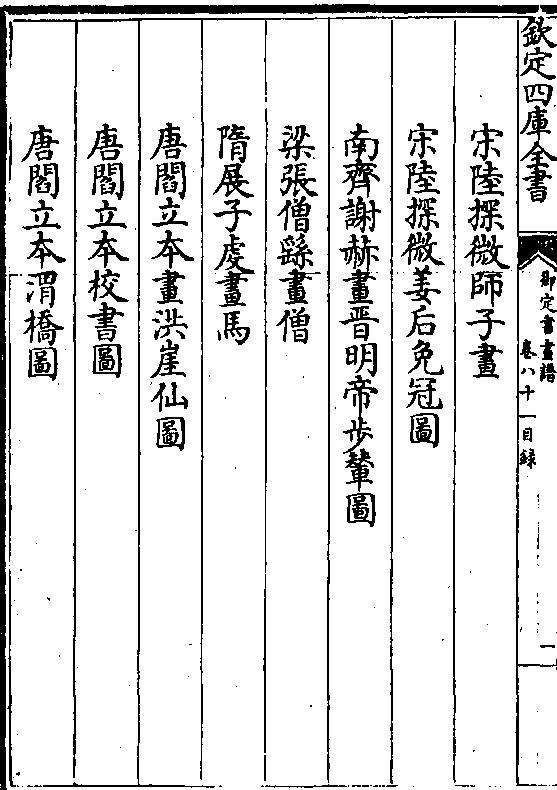 欽定四庫全書
御定書畫譜
卷八十一目録
一
宋陸探微師子畫
宋陸探微姜后免冠圖
南齊謝赫畫晉明帝步輦圖
梁張僧繇畫僧
隋展子虔畫馬
唐閻立本畫洪崖仙圖
唐閻立本校書圖
唐閻立本渭橋圖